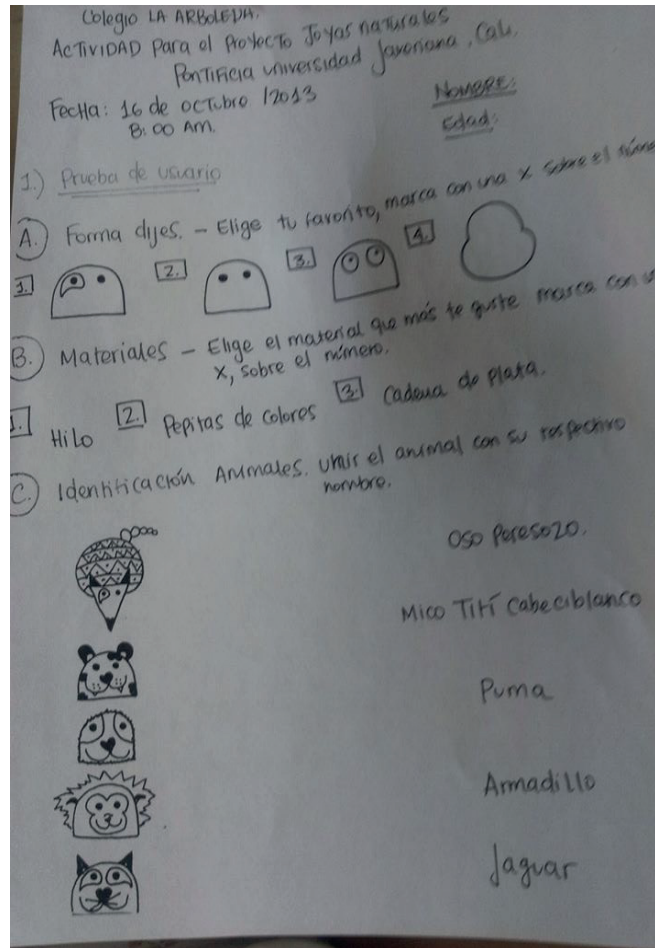 Colegio LA ARBOLEDA.
ACTIVIDAD Para el Proyecto Joyas naturales
Pontificia Universidad Javeriana, Cali.
Fecha: 16 de octubre /2013
8:00 Am.
NOMBRE:
Edad:
1.) Prueba de usuario
A.) Forma dijes. - Elige tu favorito, marca con una x sobre el
1. 2. 3. 4.
B.) Materiales - Elige el material que más te guste marca con
X, sobre el número.
1. Hilo 2. Pepitas de colores 3. Cadena de plata.
C.) Identificación Animales. Unir el animal con su respectivo
nombre.
Oso Peresozo.
Mico Tití Cabeciblanco
Puma
Armadillo
Jaguar